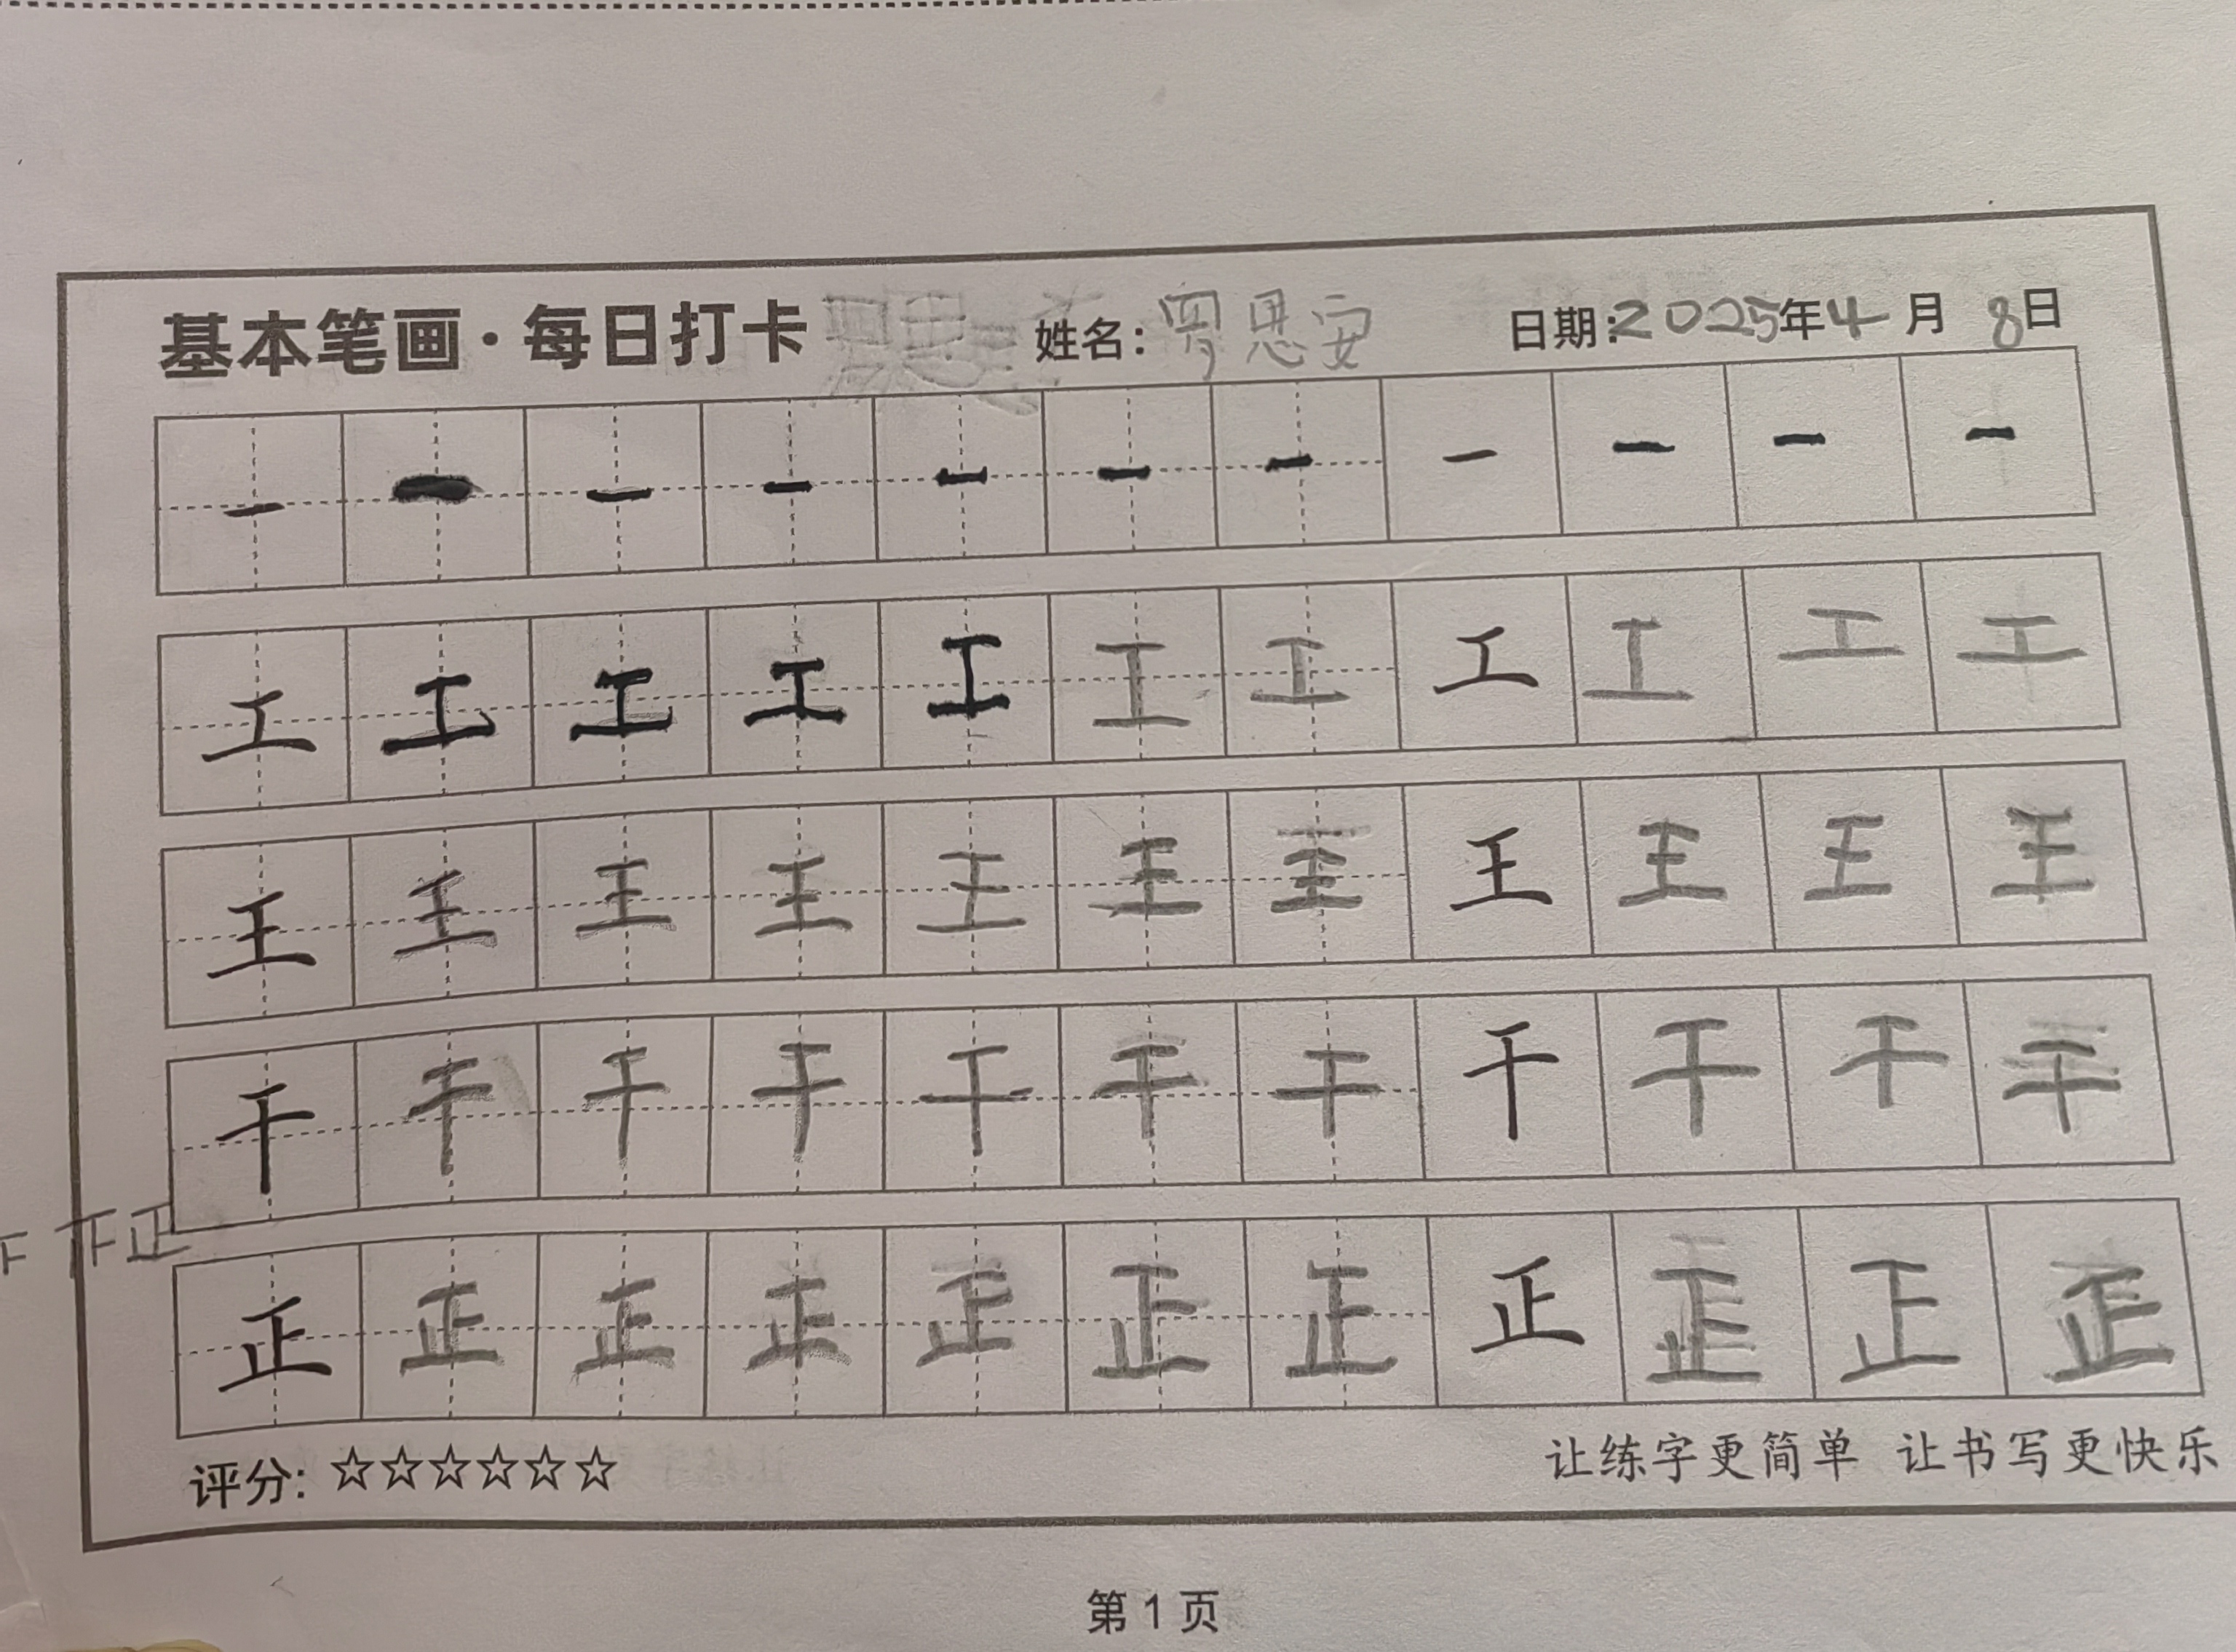 基本笔画·每日打卡 姓名:罗思安 日期:2025年4月8日
一 一 一 一 一 一 一 一 一 一 一
工 工 工 工 工 工 工 工 工 工 工
王 王 王 王 王 王 王 王 王 王 王
干 干 干 干 干 干 干 干 干 干 干
正
正 正 正 正 正 正 正 正 正 正 正
评分:☆☆☆☆☆☆ 让练字更简单 让书写更快乐
第1页